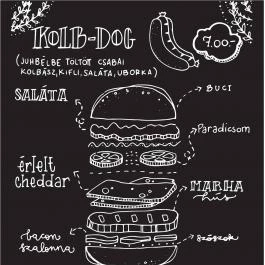 KOLB-DOG
9.00.-
(JUHBÉLBE TÖLTÖTT CSABAI
KOLBÁSZ, KIFLI, SALÁTA, UBORKA)
SALÁTA
BUCI
Paradicsom
érlelt
cheddar
MARHA
hús
bacon
szalonna
szószok